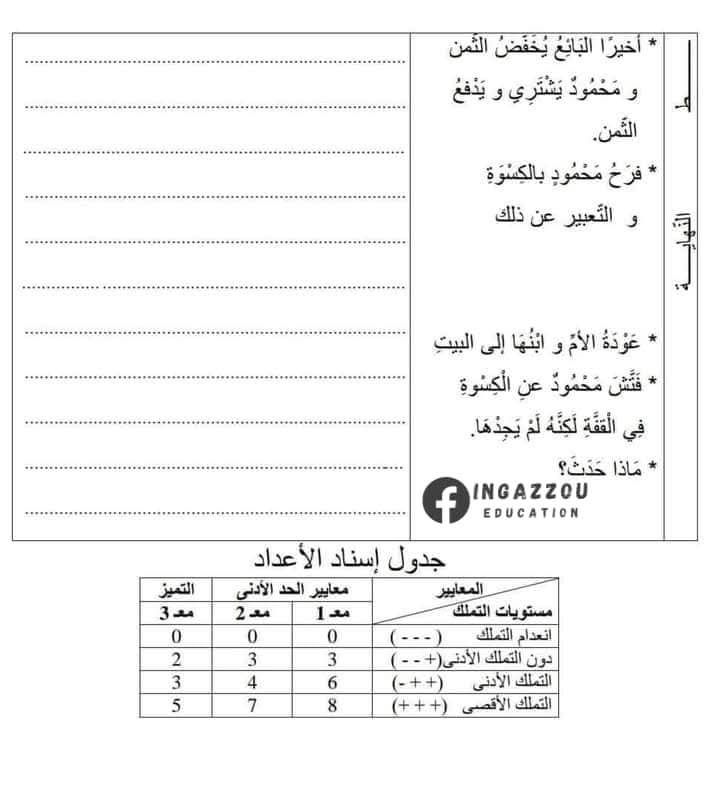 * أخيرًا البَائِعُ يُخَفِّضُ الثّمن
و مَحْمُودٌ يَشْتَرِي و يَدْفعُ
الثّمن.
* فرَحُ مَحْمُودٍ بالكِسْوَةِ
و التّعبير عن ذلك
* عَوْدَةُ الأمِّ و ابْنُهَا إلى البيتِ
* فَتَّشَ مَحْمُودٌ عنِ الْكِسْوةِ
فِي الْقفَّةِ لَكِنَّهُ لَمْ يَجِدْهَا.
* مَاذا حَدَثَ؟
النّهايـــة
INGAZZOU
EDUCATION
جدول إسناد الأعداد
المعايير معايير الحد الأدنى التميز
مستويات التملك معـ 1 معـ 2 معـ 3
انعدام التملك (- - -) 0 0 0
دون التملك الأدنى(+ - -) 3 3 2
التملك الأدنى (+ + -) 6 4 3
التملك الأقصى (+ + +) 8 7 5